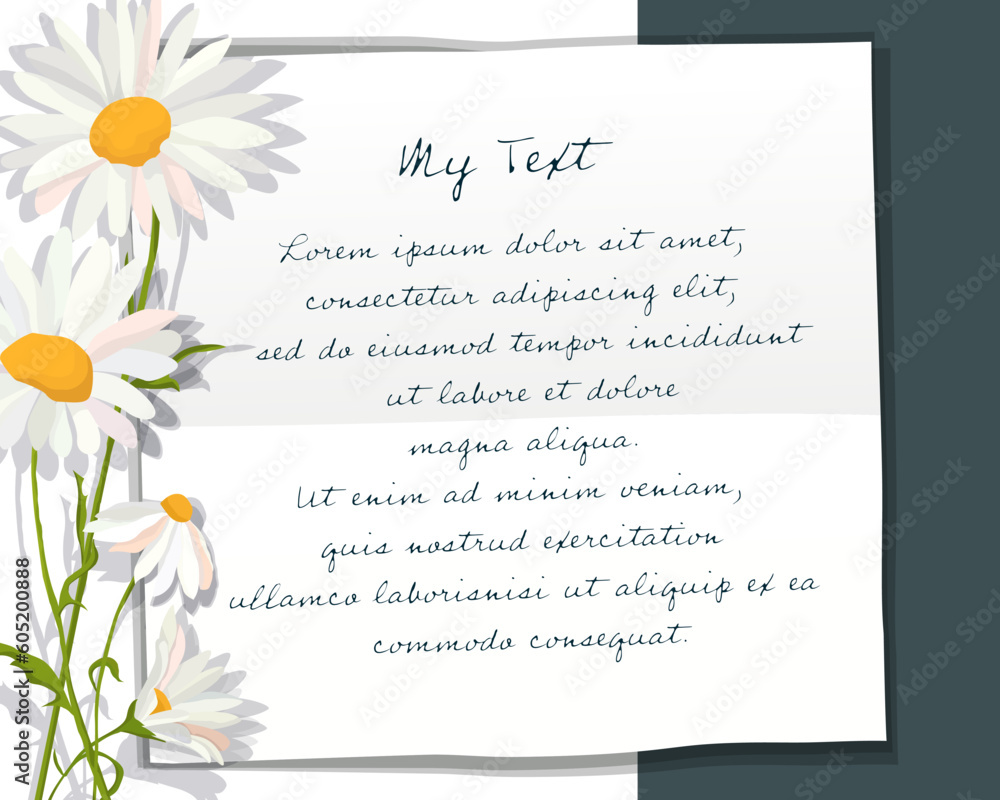 My Text
Lorem ipsum dolor sit amet,
consectetur adipiscing elit,
sed do eiusmod tempor incididunt
ut labore et dolore
magna aliqua.
Ut enim ad minim veniam,
quis nostrud exercitation
ullamco laborisnisi ut aliquip ex ea
commodo consequat.
Adobe Stock | #605200888